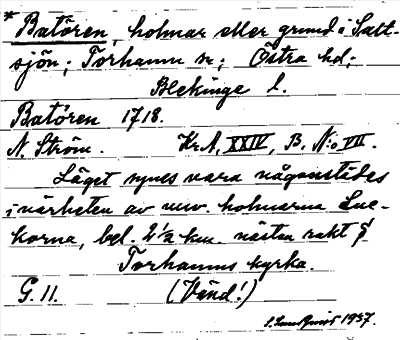 * Batören, holmar eller grund i Salt-
sjön; Torhamn sn; Östra hd;
Blekinge l.
Batören 1718.
N. Ström. Kr.A, XXIV, B, N:o VII.
Läget synes vara någonstädes
i närheten av nuv. holmarna Lue-
korna, bel. 2 1/2 km. nästan rakt
Torhamns kyrka.
G. 11. (Vänd!)
1937.